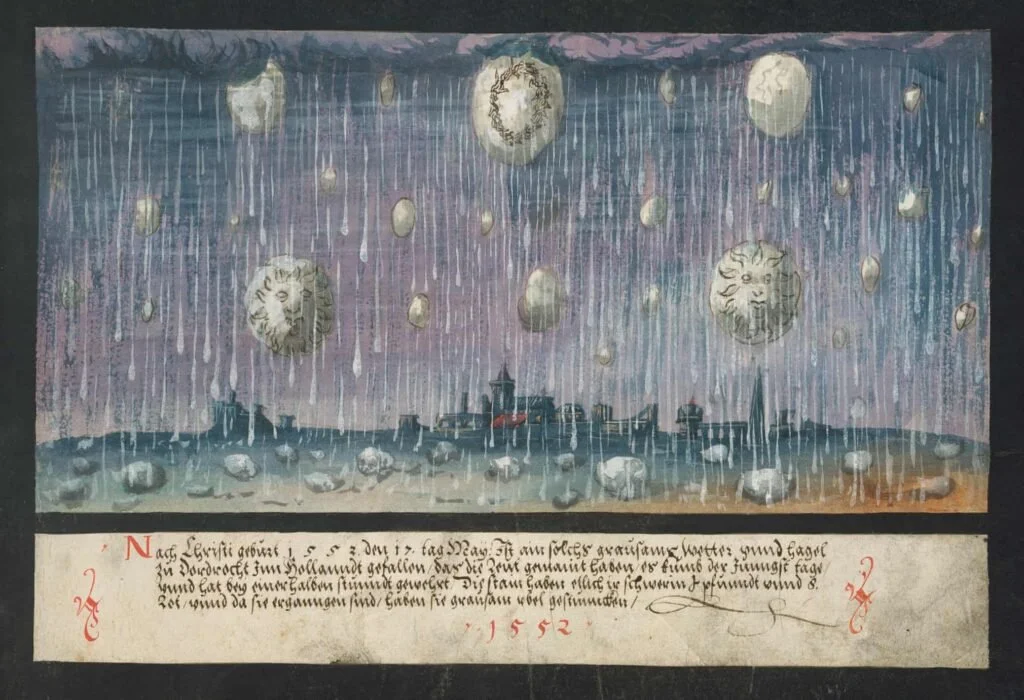 Nach Christi geburt 1552 den 17. tag May, Ist ain solchs grausams wetter vnnd hagel
zu Dordrocht Inn Hollanndt gefallen, das die Leut gemaint haben, es kumb der Jungst tage,
vnnd hat bey einer halben stunndt gewehrt. Dis stain haben etlich ir schwerin I pfunndt vnnd 8.
Lot, vnnd da sie erganngen sind, haben sie grausam vbel gestuncken,
1552